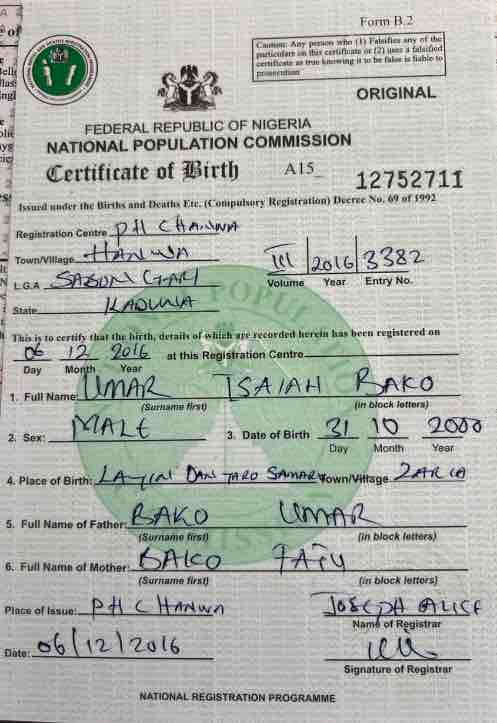 Form B.2
Caution: Any person who (1) Falsifies any of the
particulars on this certificate or (2) uses a falsified
certificate as true knowing it to be false is liable to
prosecution
ORIGINAL
FEDERAL REPUBLIC OF NIGERIA
NATIONAL POPULATION COMMISSION
Certificate of Birth A15_ 12752711
Issued under the Births and Deaths Etc. (Compulsory Registration) Decree No. 69 of 1992
Registration Centre PHC HANWA
Town/Village HANWA
L.G.A SABON GARI
State KADUNA
III 2016 3382
Volume Year Entry No.
This is to certify that the birth, details of which are recorded herein has been registered on
06 12 2016 at this Registration Centre
Day Month Year
1. Full Name: UMAR ISAIAH BAKO
(Surname first) (in block letters)
2. Sex: MALE 3. Date of Birth 31 10 2000
Day Month Year
4. Place of Birth: LAYIN DAN YARO SAMARU Town/Village ZARIA
5. Full Name of Father: BAKO UMAR
(Surname first) (in block letters)
6. Full Name of Mother: BAKO
(Surname first) (in block letters)
Place of Issue: PHC HANWA JOSEPH ALICE
Name of Registrar
Date: 06/12/2016
Signature of Registrar
NATIONAL REGISTRATION PROGRAMME